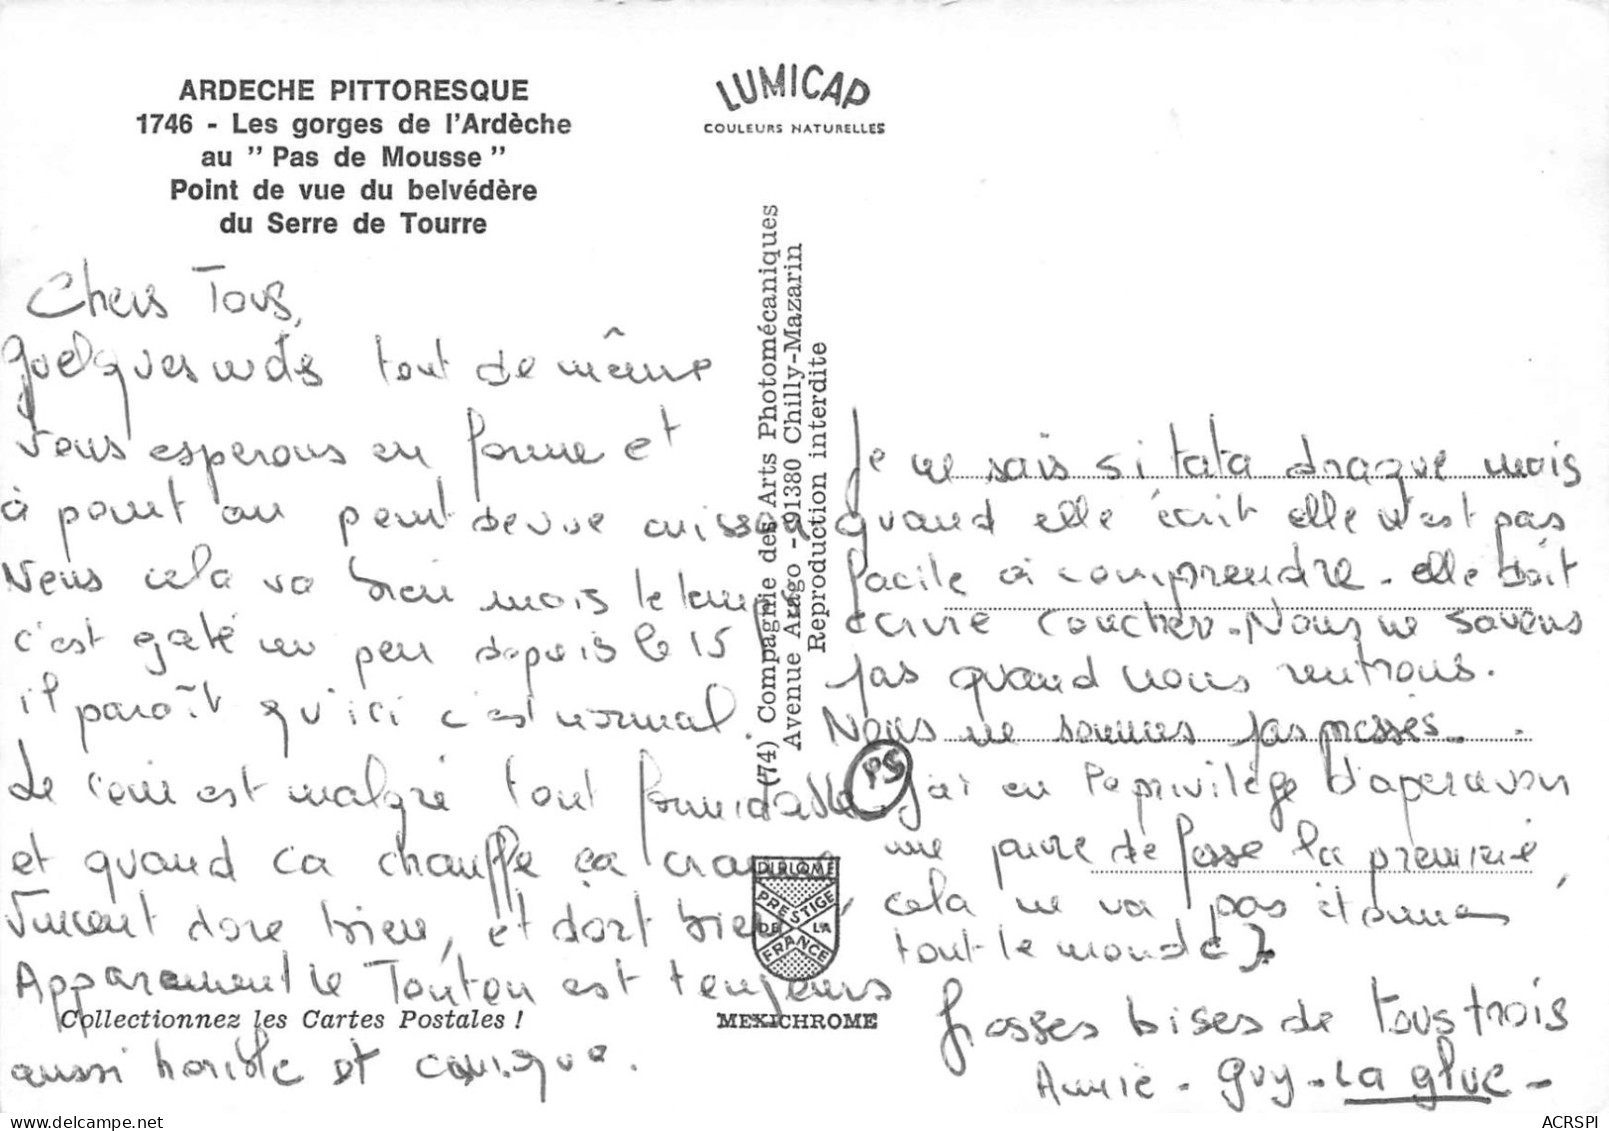 ARDECHE PITTORESQUE
1746 - Les gorges de l'Ardèche
au " Pas de Mousse "
Point de vue du belvédère
du Serre de Tourre
LUMICAP
COULEURS NATURELLES
Chers Tous,
Quelques mots tout de même
Vous esperons en forme et
à point au point de vue cuisson
Nous cela va bien mais le temps
c'est gaté un peu depuis le 15
il paraît qu'ici c'est normal.
Le coin est malgré tout formidable
et quand ca chauffe ca crame
Vincent dore bien, et dort bien
Apparemment le Tonton est toujours
aussi horible et comique.
Collectionnez les Cartes Postales !
(74) Compagnie des Arts Photomécaniques
Avenue Arago - 91380 Chilly-Mazarin
Reproduction interdite
DIPLOME
PRESTIGE
DE LA
FRANCE
MEXICHROME
Je ne sais si tata drague mais
quand elle écrit elle n'est pas
facile à comprendre. elle doit
ecrire coucher. Nous ne savons
pas quand nous rentrons.
Nous ne sommes pas pressés.
PS j'ai eu le privilège d'apercevoir
une paire de fesse la première,
cela ne va pas étonner
tout le monde
Grosses bises de tous trois
Annie - Guy - La glue -
ACRSPI